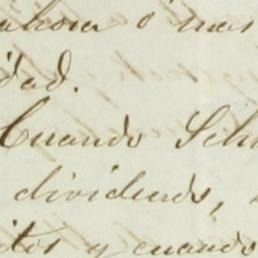 ahora ó mas
dad.
Cuando Sch
dividendo,
itos y cuando